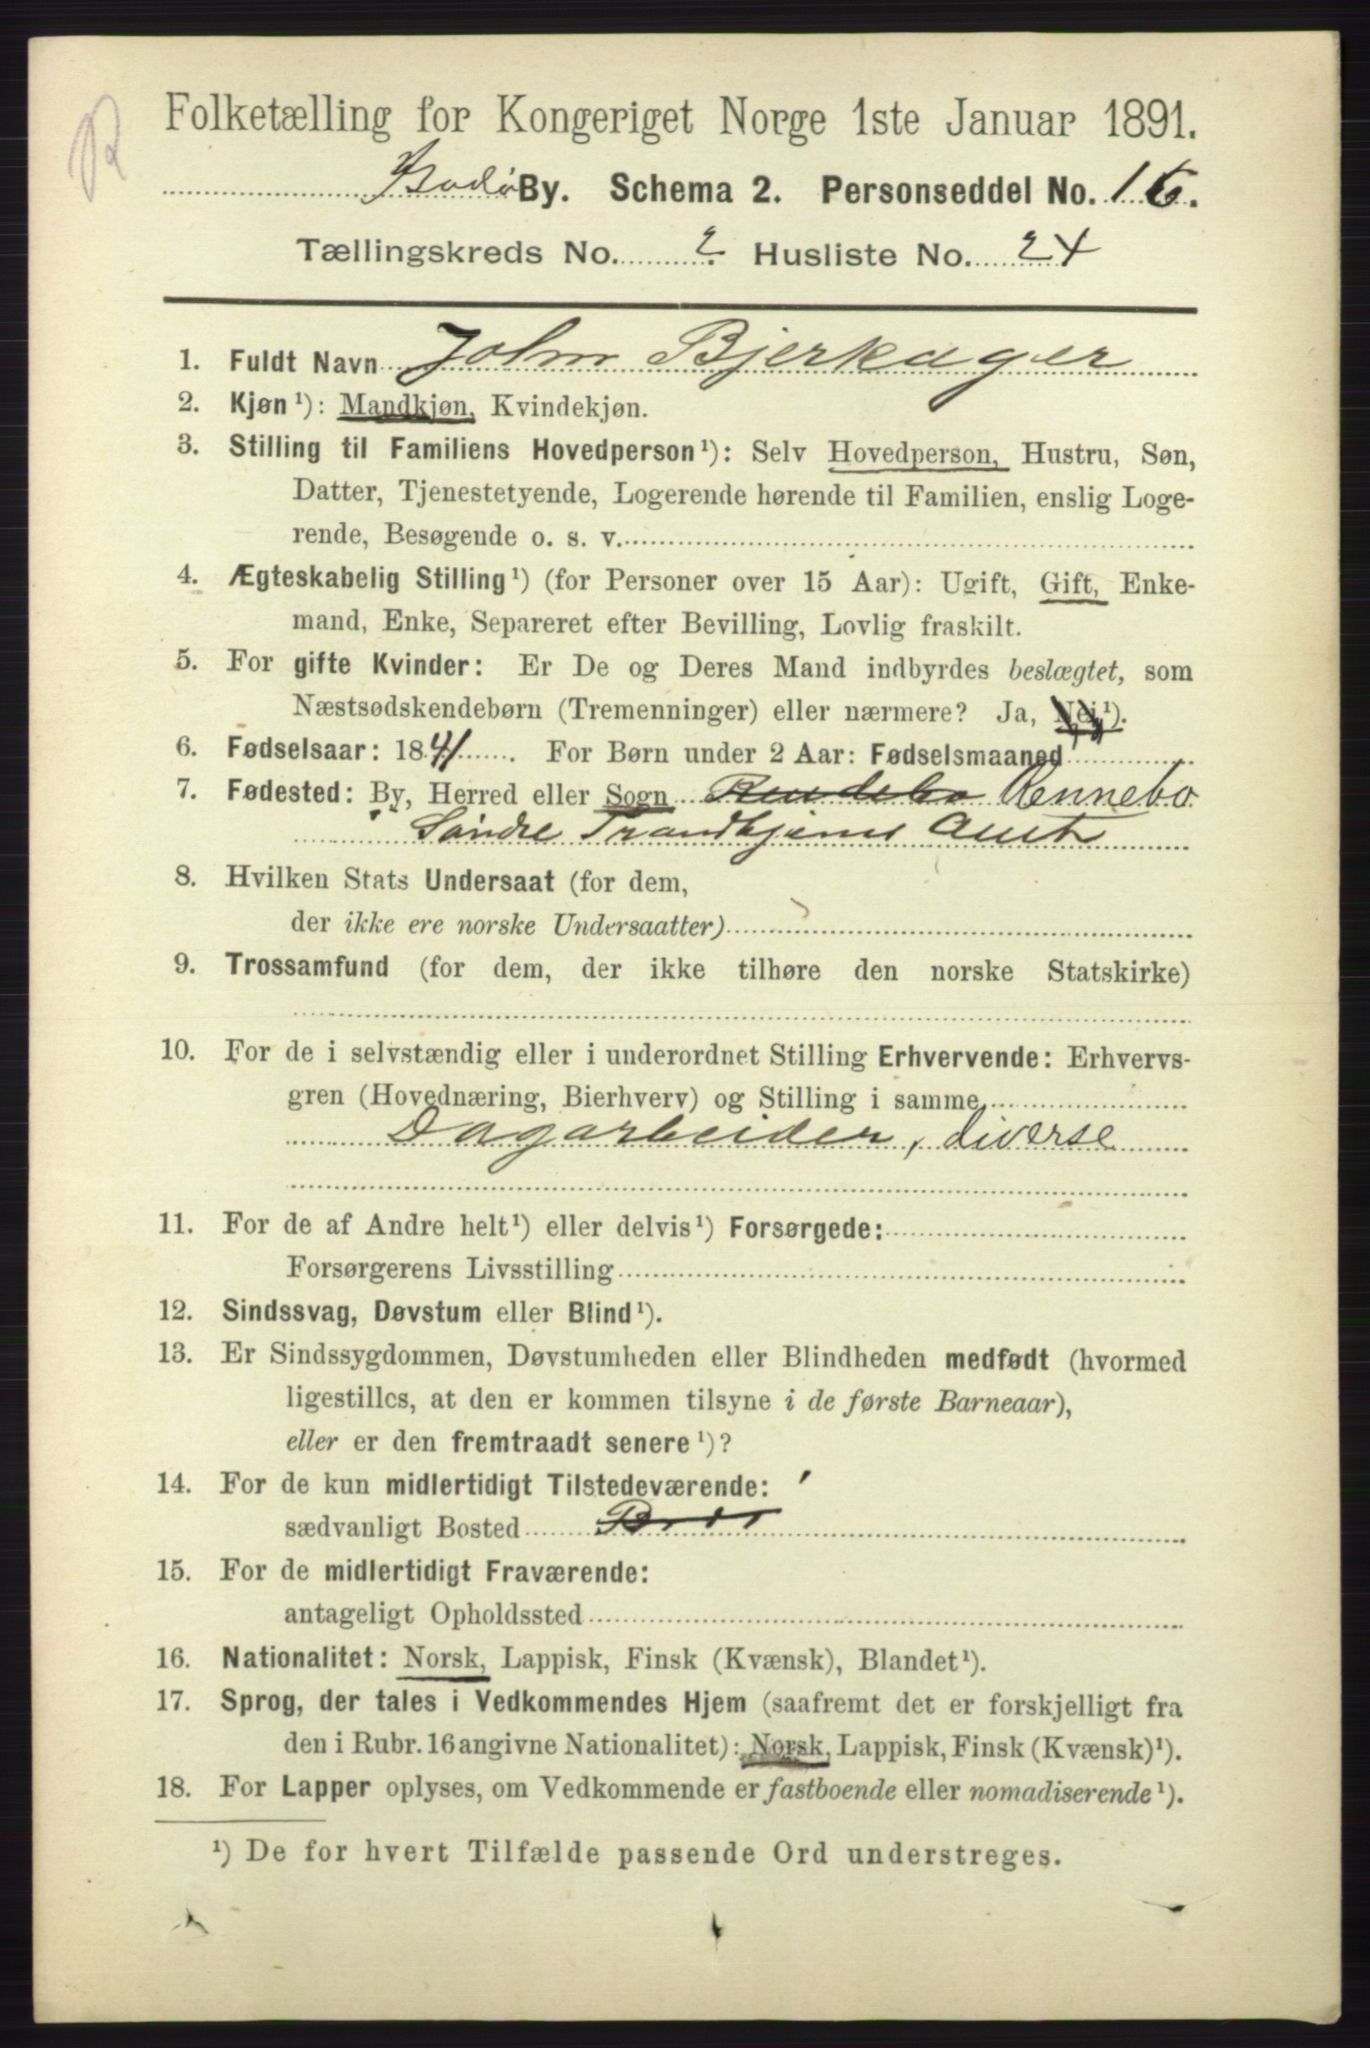 Folketælling for Kongeriget Norge 1ste Januar 1891.
Bodø By. Schema 2. Personseddel No. 16.
Tællingskreds No. 2 Husliste No. 24
1. Fuldt Navn John Bjerkager
2. Kjøn¹): Mandkjøn, Kvindekjøn.
3. Stilling til Familiens Hovedperson¹): Selv Hovedperson, Hustru, Søn,
Datter, Tjenestetyende, Logerende hørende til Familien, enslig Loge-
rende, Besøgende o. s. v.
4. Ægteskabelig Stilling¹) (for Personer over 15 Aar): Ugift, Gift, Enke-
mand, Enke, Separeret efter Bevilling, Lovlig fraskilt.
5. For gifte Kvinder: Er De og Deres Mand indbyrdes beslægtet, som
Næstsødskendebørn (Tremenninger) eller nærmere? Ja, Nei¹).
6. Fødselsaar: 1841. For Børn under 2 Aar: Fødselsmaaned
7. Fødested: By, Herred eller Sogn Rendebo Rennebo
Søndre Trondhjems Amt
8. Hvilken Stats Undersaat (for dem,
der ikke ere norske Undersaatter)
9. Trossamfund (for dem, der ikke tilhøre den norske Statskirke)
10. For de i selvstændig eller i underordnet Stilling Erhvervende: Erhvervs-
gren (Hovednæring, Bierhverv) og Stilling i samme
Dagarbeider, diverse
11. For de af Andre helt¹) eller delvis¹) Forsørgede:
Forsørgerens Livsstilling
12. Sindssvag, Døvstum eller Blind¹).
13. Er Sindssygdommen, Døvstumheden eller Blindheden medfødt (hvormed
ligestilles, at den er kommen tilsyne i de første Barneaar),
eller er den fremtraadt senere¹)?
14. For de kun midlertidigt Tilstedeværende:
sædvanligt Bosted
15. For de midlertidigt Fraværende:
antageligt Opholdssted
16. Nationalitet: Norsk, Lappisk, Finsk (Kvænsk), Blandet¹).
17. Sprog, der tales i Vedkommendes Hjem (saafremt det er forskjelligt fra
den i Rubr. 16 angivne Nationalitet): Norsk, Lappisk, Finsk (Kvænsk)¹).
18. For Lapper oplyses, om Vedkommende er fastboende eller nomadiserende¹).
¹) De for hvert Tilfælde passende Ord understreges.